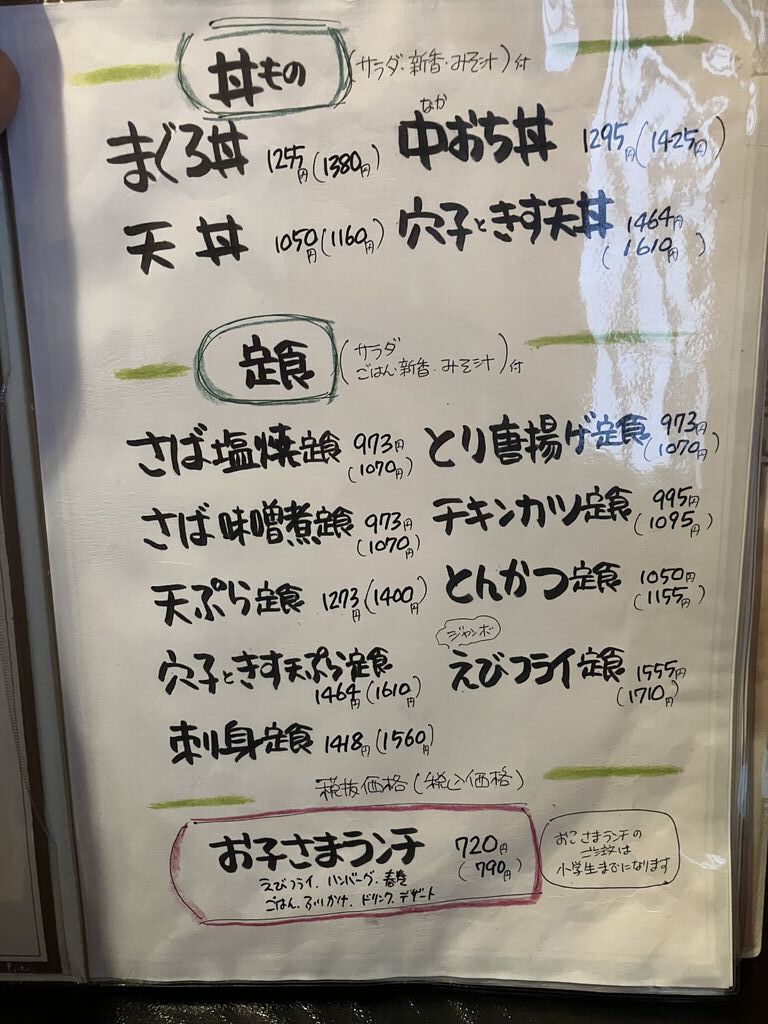 丼もの (サラダ・新香・みそ汁)付
まぐろ丼 1255円(1380円)
なか
中おち丼 1295円(1425円)
天丼 1050円(1160円)
穴子ときす天丼 1464円(1610円)
定食 (サラダ ごはん・新香・みそ汁)付
さば塩焼定食 973円(1070円)
とり唐揚げ定食 973円(1070円)
さば味噌煮定食 973円(1070円)
チキンカツ定食 995円(1095円)
天ぷら定食 1273円(1400円)
とんかつ定食 1050円(1155円)
穴子ときす天ぷら定食 1464円(1610円)
ジャンボ
えびフライ定食 1555円(1710円)
刺身定食 1418円(1560円)
税抜価格(税込価格)
お子さまランチ 720円(790円)
えびフライ、ハンバーグ、春巻
ごはん、ふりかけ、ドリンク、デザート
おこさまランチの
ご注文は
小学生までになります